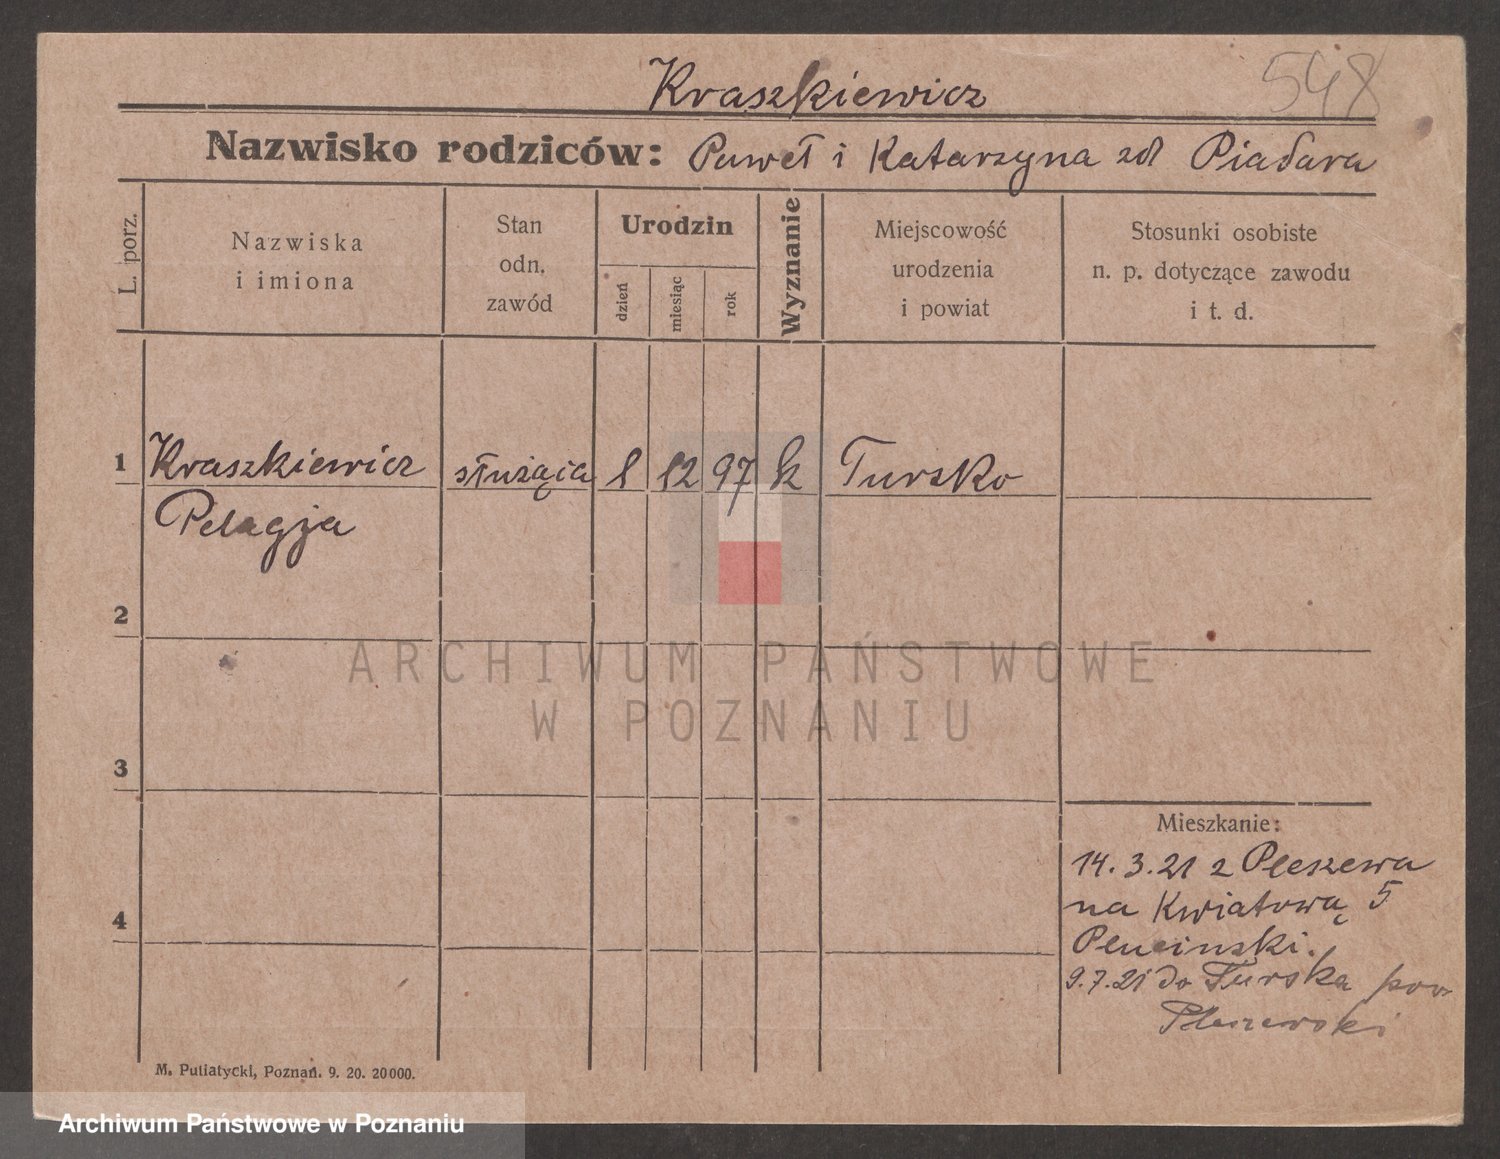 Kraszkiewicz
548
Nazwisko rodziców: Paweł i Katarzyna zd
L. porz.
Nazwiska
i imiona
Stan
odn.
zawód
Urodzin
dzień
miesiąc
rok
Wyznanie
Miejscowość
urodzenia
i powiat
Stosunki osobiste
n. p. dotyczące zawodu
i t. d.
1 Kraszkiewicz służąca 1 12 97 k Tursko
Pelagja
2
3
4
Mieszkanie:
14. 3. 21 z Pleszewa
na Kwiatową 5
Plucinski.
9. 7. 21 do Turska pow
Pleszewski
M. Putiatycki, Poznań. 9. 20. 20000.
ARCHIWUM PAŃSTWOWE
W POZNANIU
Archiwum Państwowe w Poznaniu